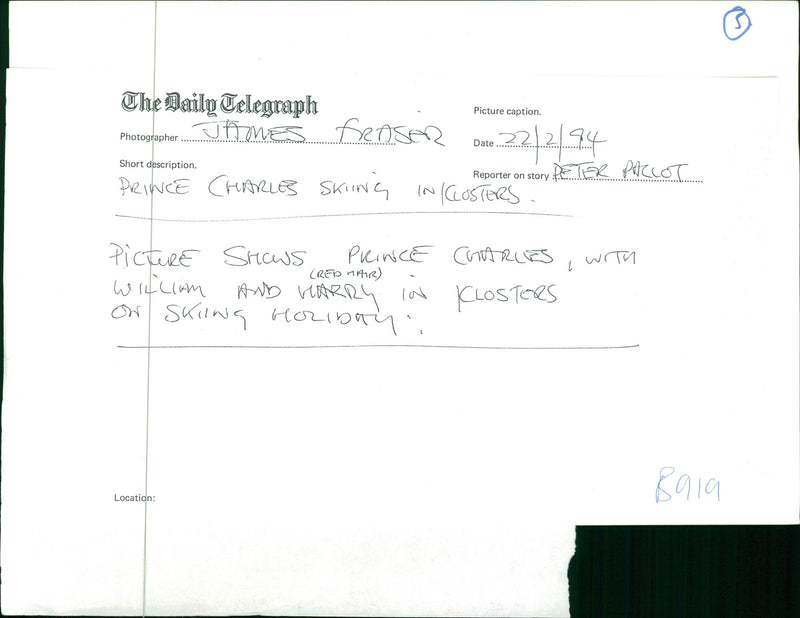 5
The Daily Telegraph
Picture caption.
Photographer JAMES FRASER
Date 22/2/94
Short description.
Reporter on story PETER PALLOT
PRINCE CHARLES SKIING IN KLOSTERS.
PICTURE SHOWS PRINCE CHARLES, WITH
(RED HAIR)
WILLIAM AND HARRY IN KLOSTERS
ON SKIING HOLIDAY.
B919
Location: